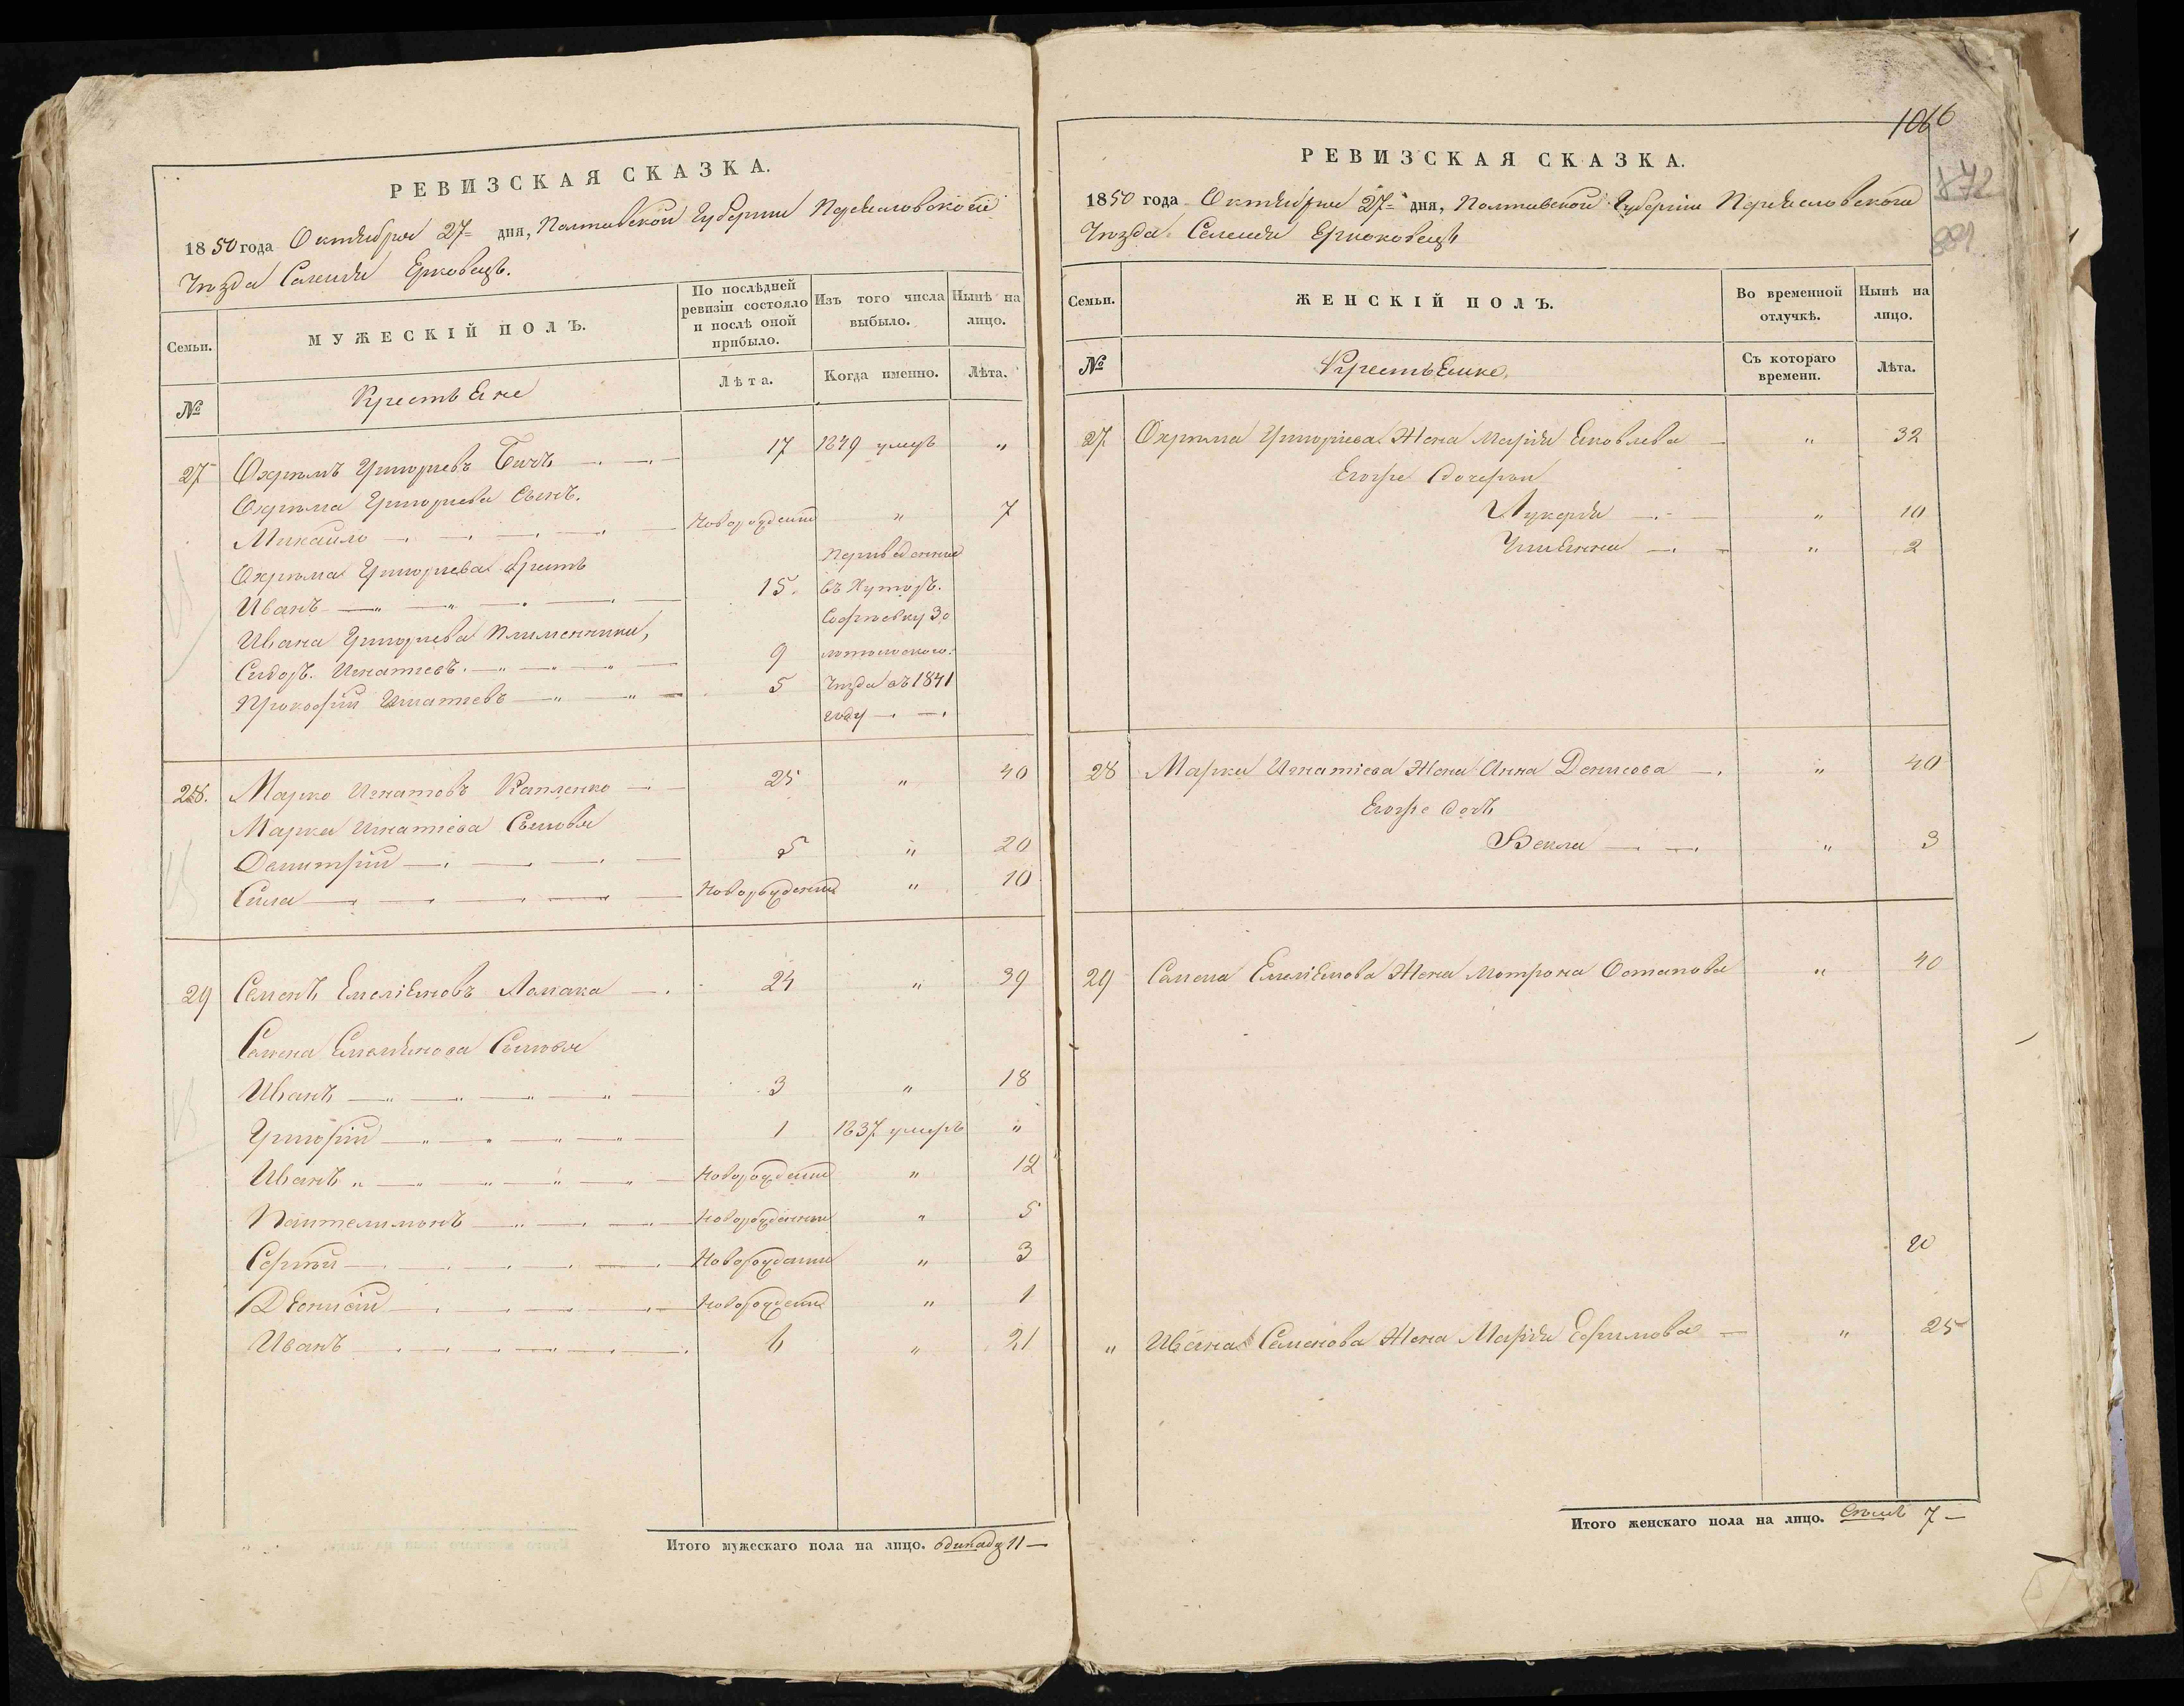 РЕВИЗСКАЯ СКАЗКА.
1850 года Октября 27 дня, Полтавской Губернии Переяславского
Уезда Селения Ерковецъ.
Семьи. МУЖЕСКІЙ ПОЛЪ. По послѣдней ревизіи состояло и послѣ оной прибыло. Изъ того числа выбыло. Нынѣ на лицо.
№ Крестьяне Лѣта. Когда именно. Лѣта.
27 Охримъ Григориевъ Бичъ 17 1849 умеръ "
Охрима Григориева Сынъ.
Михайло Новорожденный " 7
Охрима Григориева братъ
Иванъ 15
Ивана Григориева племянники,
Сидоръ Игнатиевъ 9
Прокофий Игнатиевъ 5
Переведенны
въ Хуторъ
Софиевку Зо
лотоноского
Уезда въ 1841
году
28. Марко Игнатовъ Капленко 25 " 40
Марка Игнатиева Сыновья
Димитрий 5 " 20
Сила Новорожденный " 10
29 Семенъ Емелiяновъ Ломака 24 " 39
Семена Емелиянова Сыновья
Иванъ 3 " 18
Григорий 1 1837 умеръ "
Иванъ Новорожденный " 12
Пантелимонъ Новорожденный " 5
Сергий Новорожденный " 3
Дионисий Новорожденный " 1
Иванъ 6 " 21
Итого мужескаго пола на лицо. одинадц 11
1066
872
881
РЕВИЗСКАЯ СКАЗКА.
1850 года Октября 27 дня, Полтавской Губернiи Переяславского
Уезда Селения Ерковецъ
Семьи. ЖЕНСКІЙ ПОЛЪ. Во временной отлучкѣ. Нынѣ на лицо.
№ Крестьянке. Съ котораго времени. Лѣта.
27 Охрима Григорiева Жена Марiя Яковлева " 32
Егоже дочери
Лукерия " 10
Ульянна " 2
28 Марка Игнатiева Жена Анна Денисова " 40
Егоже дочь
Векла " 3
29 Семена Емелiянова Жена Мотрона Остапова " 40
20
" Ивана Семенова Жена Марiя Ефимова " 25
Итого женскаго пола на лицо. Семь 7